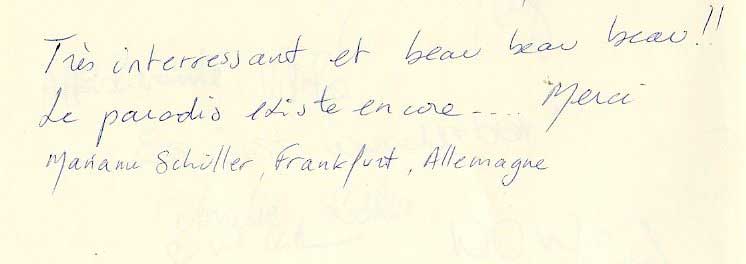 Très interressant et beau beau beau!!
Le paradis existe encore.... Merci
Mariane Schüller, Frankfurt, Allemagne